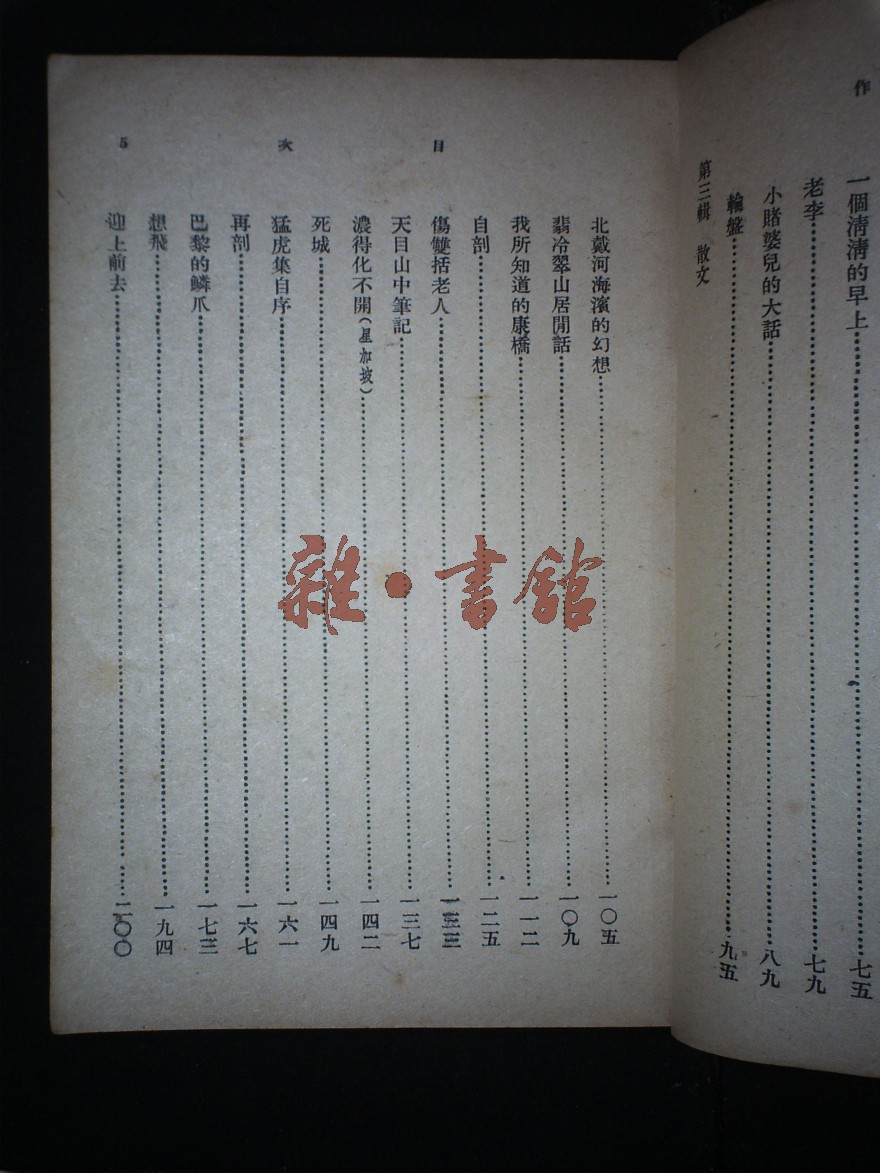 作
一個清清的早上……七五
老李……七九
小賭婆兒的大話……八九
輪盤……九五
第三輯 散文
目 次 5
北戴河海濱的幻想……一〇五
翡冷翠山居閒話……一〇九
我所知道的康橋……一一二
自剖……一二五
傷雙括老人……一三三
天目山中筆記……一三七
濃得化不開(星加坡)……一四二
死城……一四九
猛虎集自序……一六一
再剖……一六七
巴黎的鱗爪……一七三
想飛……一九四
迎上前去……二〇〇
雜·書館